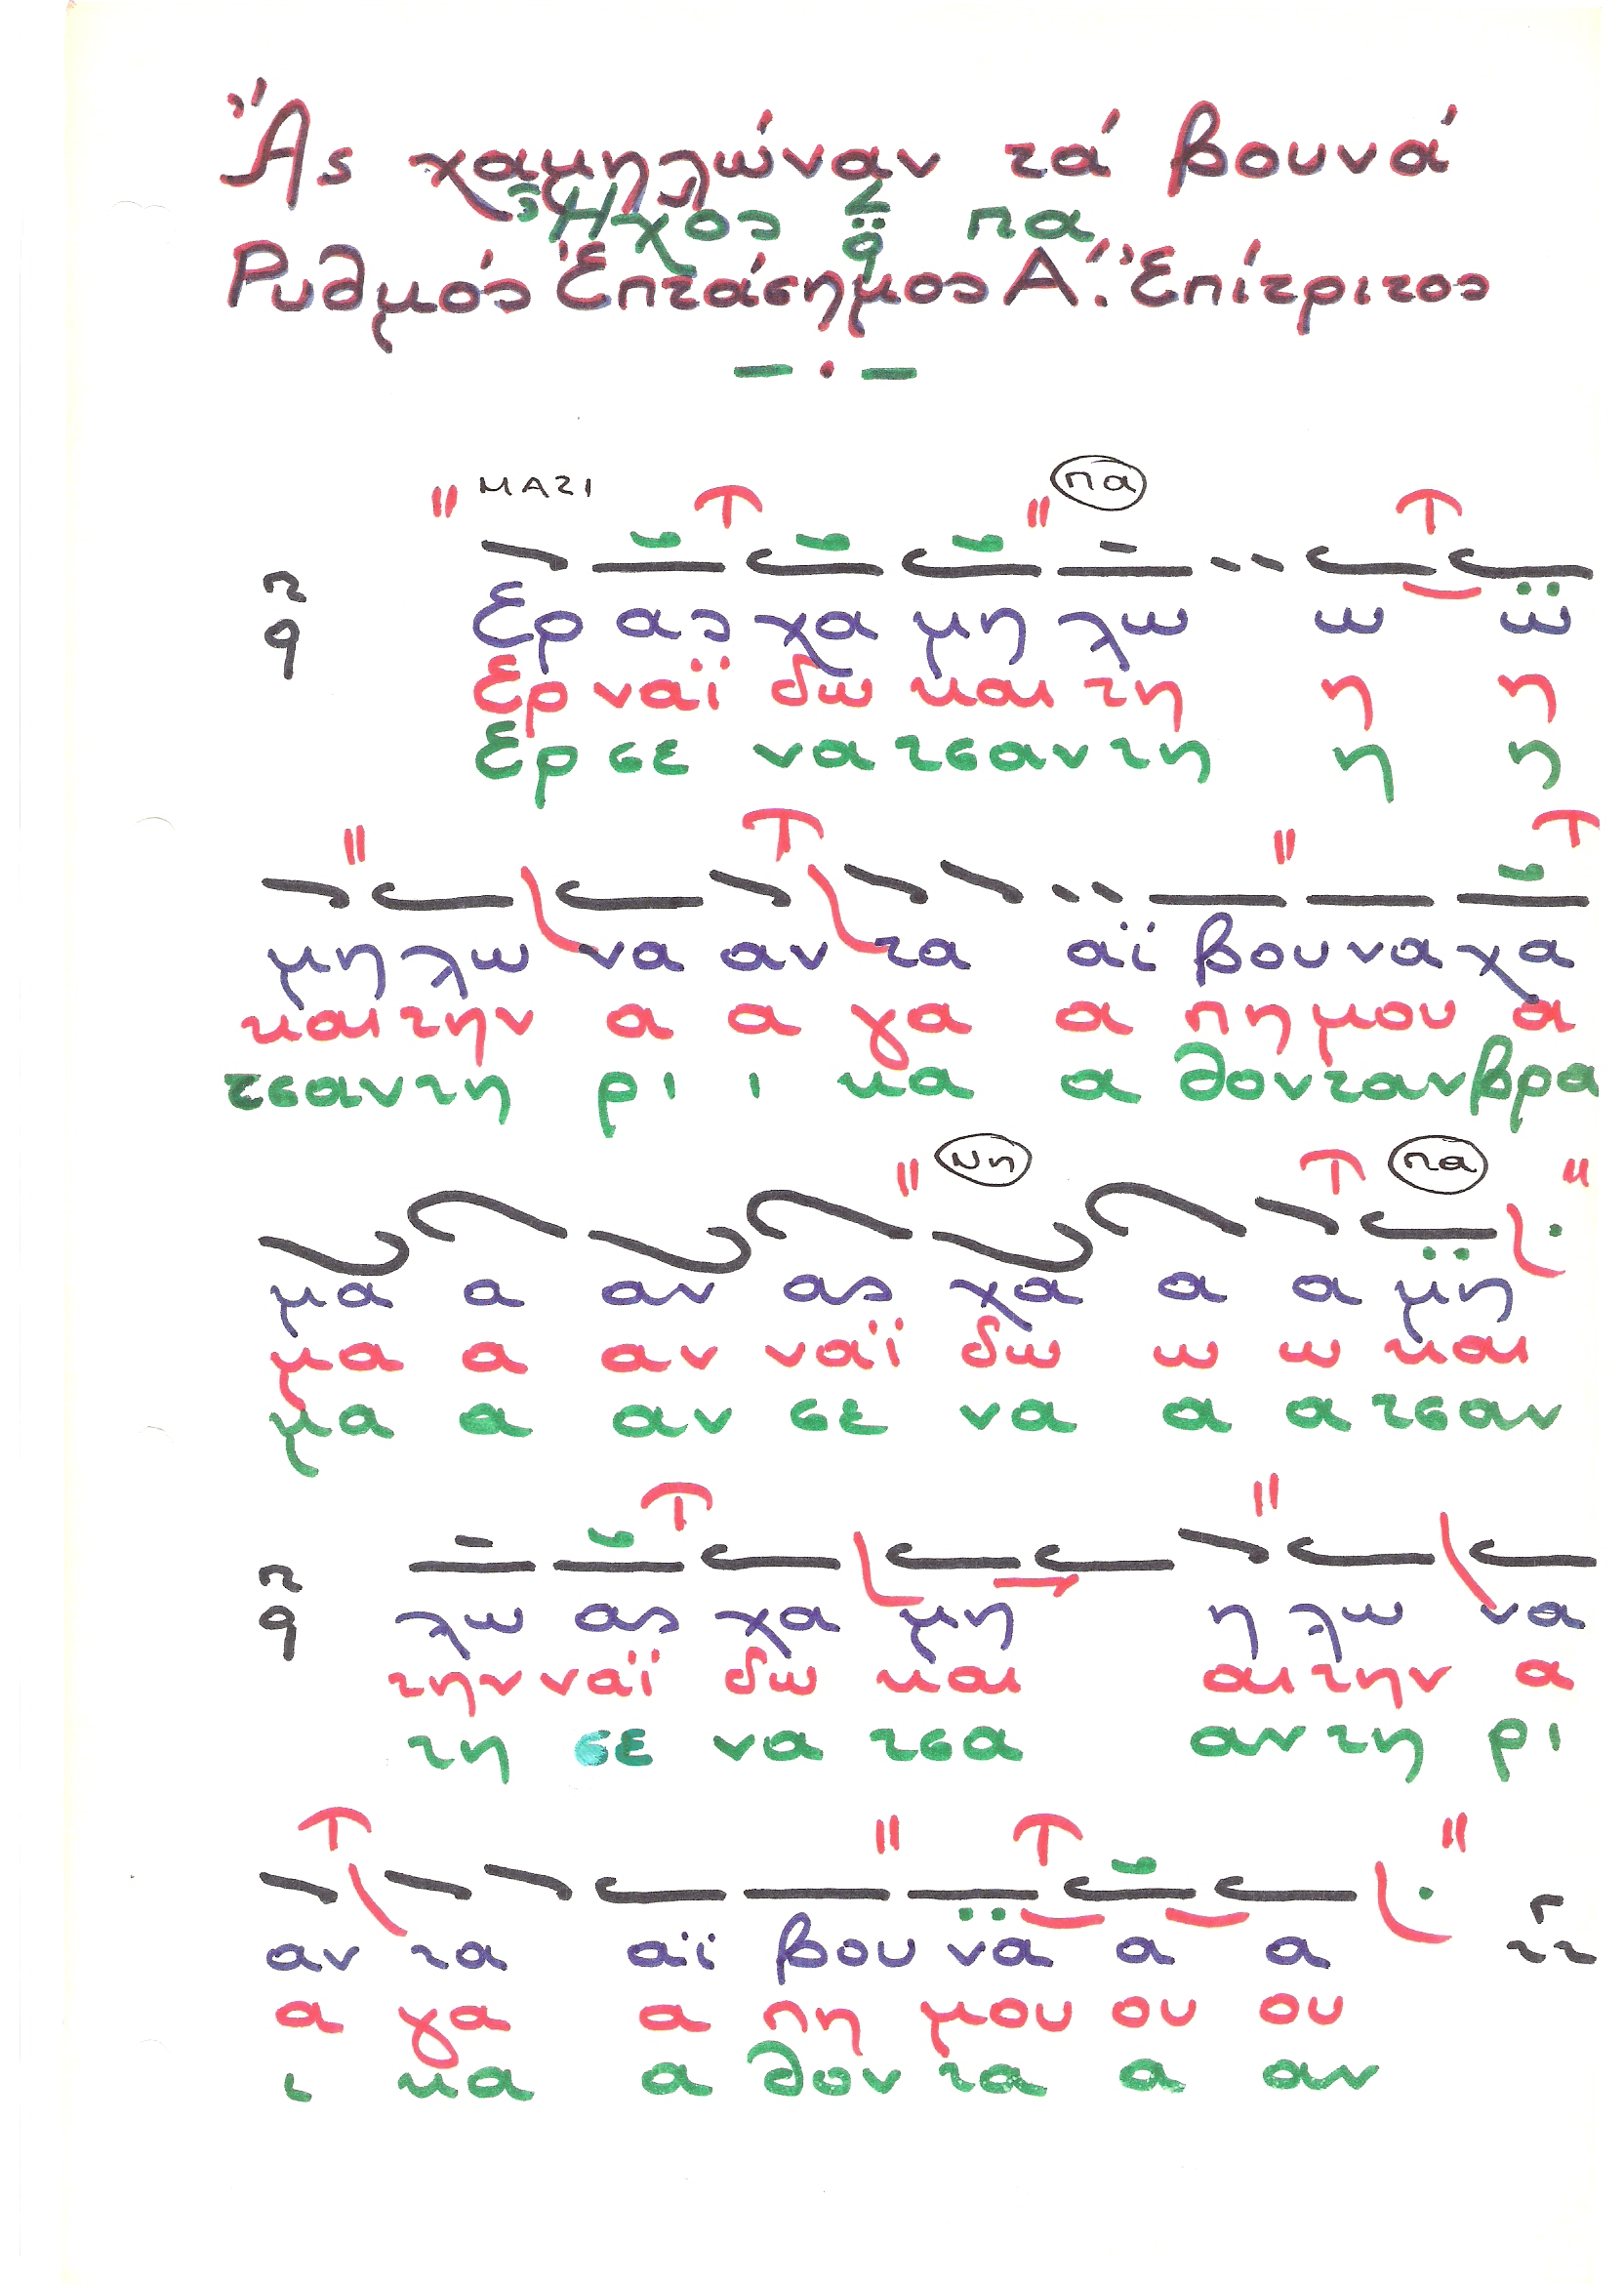 Ἄς χαμηλώναν τά βουνά
Ἦχος πα
Ρυθμός Ἑπτάσημος Α΄. Ἐπίτριτος
ΜΑΖΙ πα
Ερ ας χα μη λω ω ω
Ερ ναϊ δω και τη η η
Ερ σε να τσαν τη η η
μη λω να αν τα αϊ βου να χα
και την α α γα α πη μου α
τσαν τη ρι ι κα α θον ταν βρα
Νη πα
μα α αν ας χα α α μη
μα α αν ναϊ δω ω ω και
μα α αν σε να α α τσαν
λω ας χα μη η λω να
την ναϊ δω και αι την α
τη σε να τσα αν τη ρι
αν τα αϊ βου να α α
α γα α πη μου ου ου
ι κα α θον τα α αν